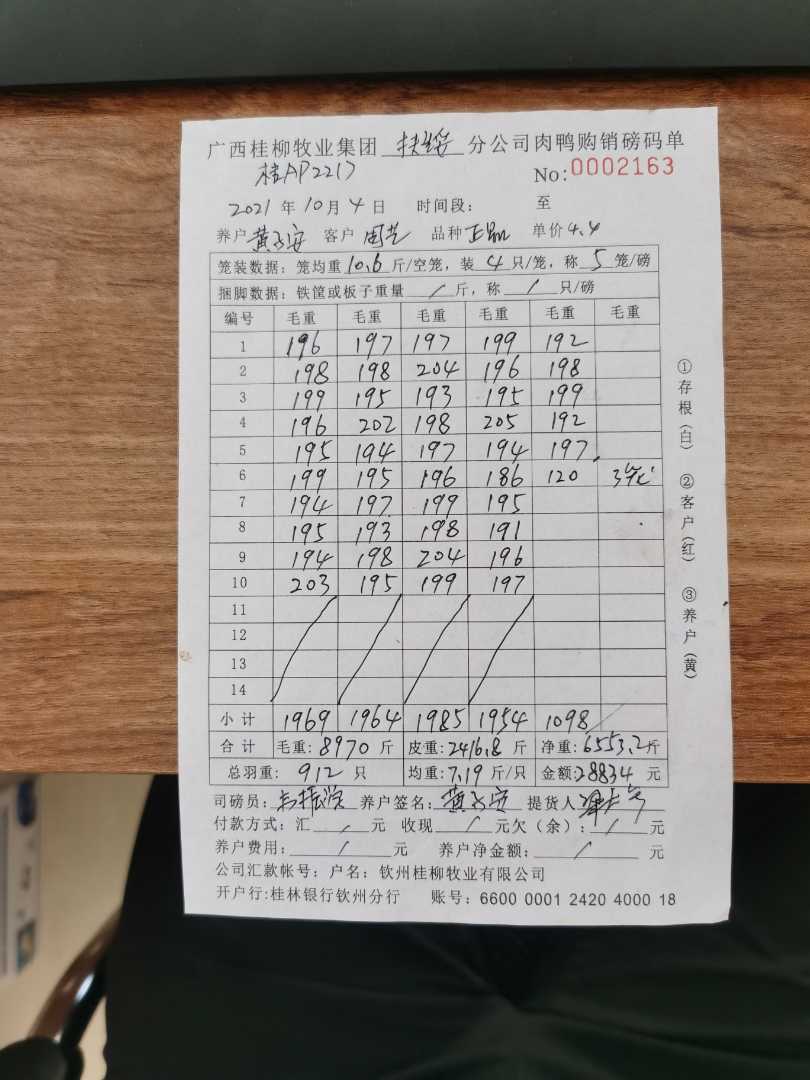 广西桂柳牧业集团 扶绥 分公司肉鸭购销磅码单
桂AP2217 No:0002163
2021 年 10 月 4 日 时间段: 至
养户 黄子安 客户 周艺 品种 正品 单价 4.4
笼装数据:笼均重 10.6 斤/空笼,装 4 只/笼,称 5 笼/磅
捆脚数据:铁筐或板子重量 / 斤,称 / 只/磅
编号 毛重 毛重 毛重 毛重 毛重 毛重
1 196 197 197 199 192
2 198 198 204 196 198
3 199 195 193 195 199
4 196 202 198 205 192
5 195 194 197 194 197
6 199 195 196 186 120 3笼
7 194 197 199 195
8 195 193 198 191
9 194 198 204 196
10 203 195 199 197
11
12
13
14
小计 1969 1964 1985 1954 1098
合计 毛重:8970 斤 皮重:2416.8 斤 净重:6553.2斤
总羽重: 912 只 均重:7.19 斤/只 金额:28834 元
司磅员: 养户签名: 黄子安 提货人
付款方式:汇 / 元 收现 / 元欠(余): / 元
养户费用: / 元 养户净金额: / 元
公司汇款帐号:户名:钦州桂柳牧业有限公司
开户行:桂林银行钦州分行 账号:6600 0001 2420 4000 18
①存根(白) ②客户(红) ③养户(黄)